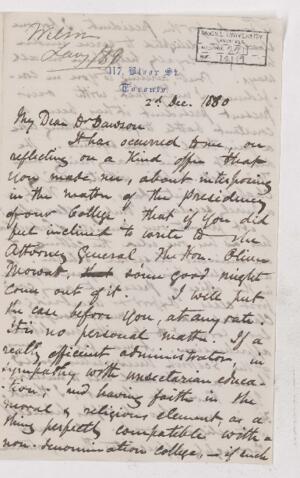 Wilson
117, Bloor St.
Toronto
2nd Dec. 1880
My Dear Dr Dawson
It has occurred to me, on
reflecting on a kind offer that
you made me, about interposing
in the matter of the presidency
of our College, that if you did
feel inclined to write to the
Attorney General The Hon. Oliver
Mowat, some good might
come out of it. I will put
the case before you, at any rate.
It is no personal matter. If a
really efficient administrator, in
sympathy with unsectarian educa-
tion; and having faith in the
moral & religious element, as a
thing perfectly compatible with a
non-denomination college, — if such